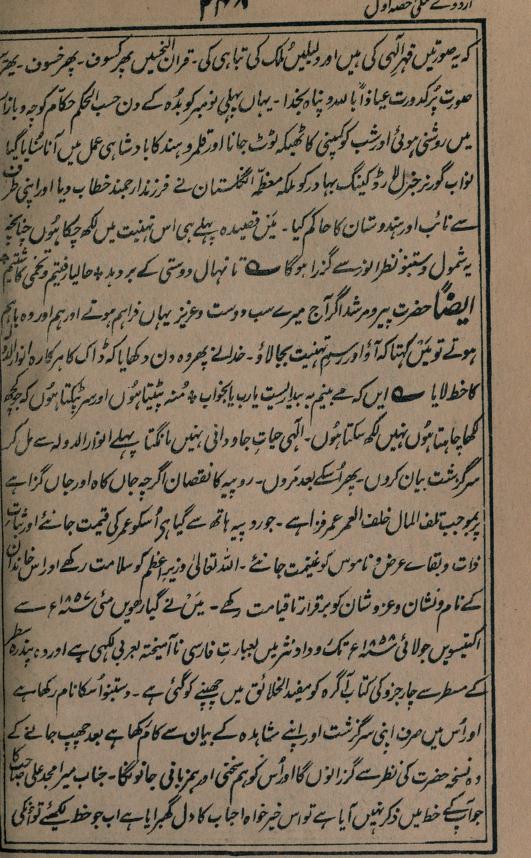 اردوئے معلیٰ حصہ اول ۲۴۸
کہ یہ صورتیں قہر الٰہی کی ہیں اور دلیلیں ملک کی تباہی کی۔ قران النحسین پھر کسوف۔ پھر خسوف۔ پھر
صورت پر کدورت عیاذاً باللہ و پناہ بخدا۔ یہاں پہلی نومبر کو بدھ کے دن حسب الحکم حکام کوچہ و بازار
میں روشنی ہوئی اور شب کو کمپنی کا ٹھیکہ ٹوٹ جانا اور قلمرو ہند کا بادشاہی عمل میں آنا سُنایا گیا
نواب گورنر جنرل لارڈ کیننگ بہادر کو ملکہ معظمہ انگلستان نے فرزند ارجمند خطاب دیا اور اپنی طرف
سے نائب اور ہندوستان کا حاکم کیا۔ میں قصیدہ پہلے ہی اس تہنیت میں لکھ چکا ہوں چنانچہ
بہ شمول دستنبو نظر انور سے گزرا ہوگا ؎ تا نہال دوستی کے بر دہد ٭ حالیا رفتیم و تخمی کاشتیم
ایضاً حضرت پیر و مرشد اگر آج میرے سب دوست و عزیز یہاں فراہم ہوتے اور ہم اور وہ باہم
ہوتے تو میں کہتا کہ آؤ اور رسم تہنیت بجا لاؤ۔ خدا نے پھر وہ دن دکھایا کہ ڈاک کا ہرکارہ انوار الدولہ
کا خط لایا ؎ ایں کہ مے بینم بہ بیداریست یارب یا بخواب ٭ منہ پیٹتا ہوں اور سر پٹکتا ہوں کہ جو کچھ
لکھا چاہتا ہوں نہیں لکھ سکتا ہوں۔ الٰہی حیات جاودانی نہیں مانگتا پہلے انوار الدولہ سے مل کر
سرگزشت بیان کروں۔ پھر اُسکے بعد مروں۔ روپیہ کا نقصان اگرچہ جاں کاہ اور جاں گزا ہے
پر بموجب تلف المال خلف العمر عمر فزا ہے۔ جو روپیہ ہاتھ سے گیا ہی اُسکو عمر کی قیمت جانئے اور ثبات
ذات و بقائے عرض و ناموس کو غنیمت جانئے۔ اللہ تعالیٰ وزیر اعظم کو سلامت رکھے اور اس خاندان
کے نام و نشان و عز و شان کو برقرار تا قیامت رکھے۔ میں نے گیارھویں مئی ۱۸۵۷ء سے
اکتیسویں جولائی ۱۸۵۸ء تک روداد نثر میں بعبارت فارسی نا آمیختہ بعربی لکھی ہے اور وہ پندرہ سطر
کے مسطر سے چار جزو کی کتاب آگرہ کو مفید الخلائق میں چھپنے کو گئی ہے۔ دستنبو اسکا نام رکھا ہے
اور اُس میں صرف اپنی سرگزشت اور اپنے مشاہدہ کے بیان سے کام رکھا ہے بعد چھپ جانے کے
وہ نسخہ حضرت کی نظر سے گزرانوں گا اور اُس کو ہم سخنی اور ہمزبانی جانوں گا۔ جناب میر امجد علی صاحب کا
جو آپکے خط میں ذکر نہیں آیا ہے تو اس خیر خواہ احباب کا دل گھبرایا ہے اب جو خط لکھیئے تو انکی